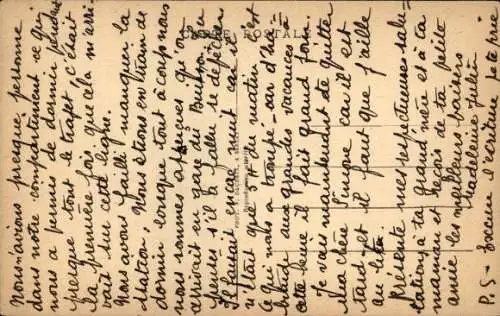 CARTE POSTALE
Nous n'avions presque personne
dans notre compartiment ce qui
nous a permis de dormir pendant
presque tout le trajet c'était
la première fois que cela m'arri-
vait sur cette ligne.
Nous avons failli manquer la
station, Nous étions en train de
dormir lorsque tout à coup nous
nous sommes aperçues qu'on
arrivait en gare du Buisson
pensez s'il a fallu se dépêcher
Il faisait encore nuit car il
n'était que 5H du matin c'est
ce qui nous a trompé - car d'habi-
tude aux grandes vacances à
cette heure il fait grand jour
Je vais maintenant te quitter
ma chère car il est
tard et il faut que j'aille
au lit.
Présente mes respectueuses salu-
tations à ta grand'mère et à ta
maman et reçois de ta petite
amie les meilleurs baisers
Madeleine Julien
P.S - l'écriture